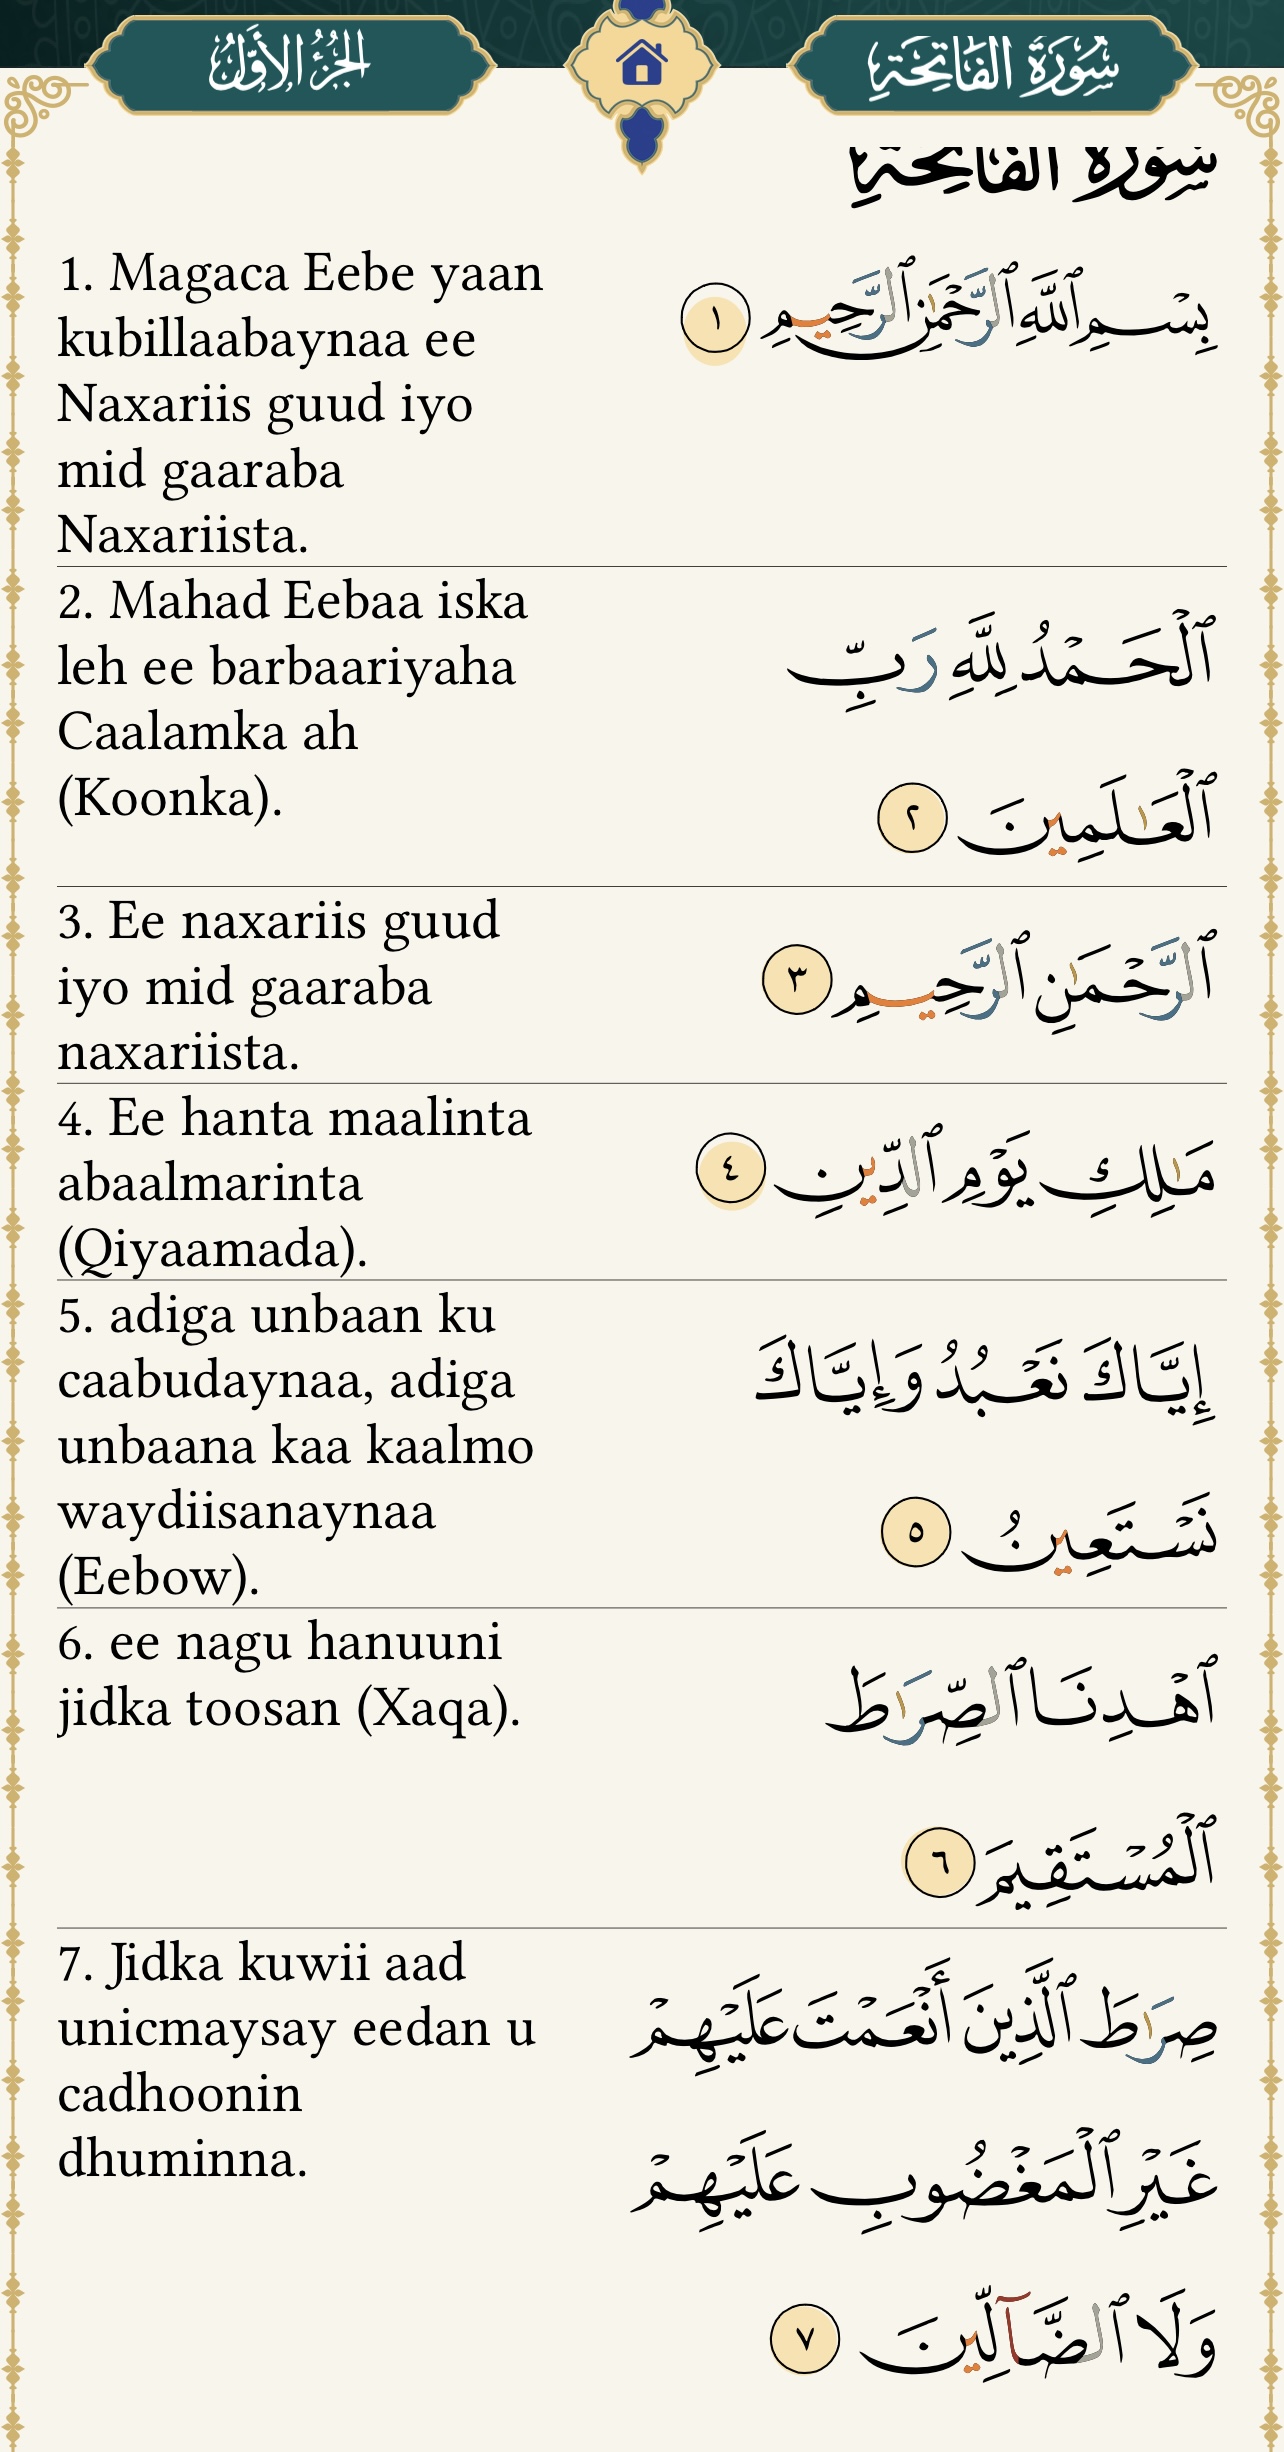 سُورَةُ الفَاتِحَةِ
الجُزْءُ الأَوَّلُ
سُورَةُ الفَاتِحَةِ
بِسْمِ ٱللَّهِ ٱلرَّحْمَٰنِ ٱلرَّحِيمِ ١
1. Magaca Eebe yaan
kubillaabaynaa ee
Naxariis guud iyo
mid gaaraba
Naxariista.
ٱلْحَمْدُ لِلَّهِ رَبِّ
ٱلْعَٰلَمِينَ ٢
2. Mahad Eebaa iska
leh ee barbaariyaha
Caalamka ah
(Koonka).
ٱلرَّحْمَٰنِ ٱلرَّحِيمِ ٣
3. Ee naxariis guud
iyo mid gaaraba
naxariista.
مَٰلِكِ يَوْمِ ٱلدِّينِ ٤
4. Ee hanta maalinta
abaalmarinta
(Qiyaamada).
إِيَّاكَ نَعْبُدُ وَإِيَّاكَ
نَسْتَعِينُ ٥
5. adiga unbaan ku
caabudaynaa, adiga
unbaana kaa kaalmo
waydiisanaynaa
(Eebow).
ٱهْدِنَا ٱلصِّرَٰطَ
ٱلْمُسْتَقِيمَ ٦
6. ee nagu hanuuni
jidka toosan (Xaqa).
صِرَٰطَ ٱلَّذِينَ أَنْعَمْتَ عَلَيْهِمْ
غَيْرِ ٱلْمَغْضُوبِ عَلَيْهِمْ
وَلَا ٱلضَّآلِّينَ ٧
7. Jidka kuwii aad
unicmaysay eedan u
cadhoonin
dhuminna.